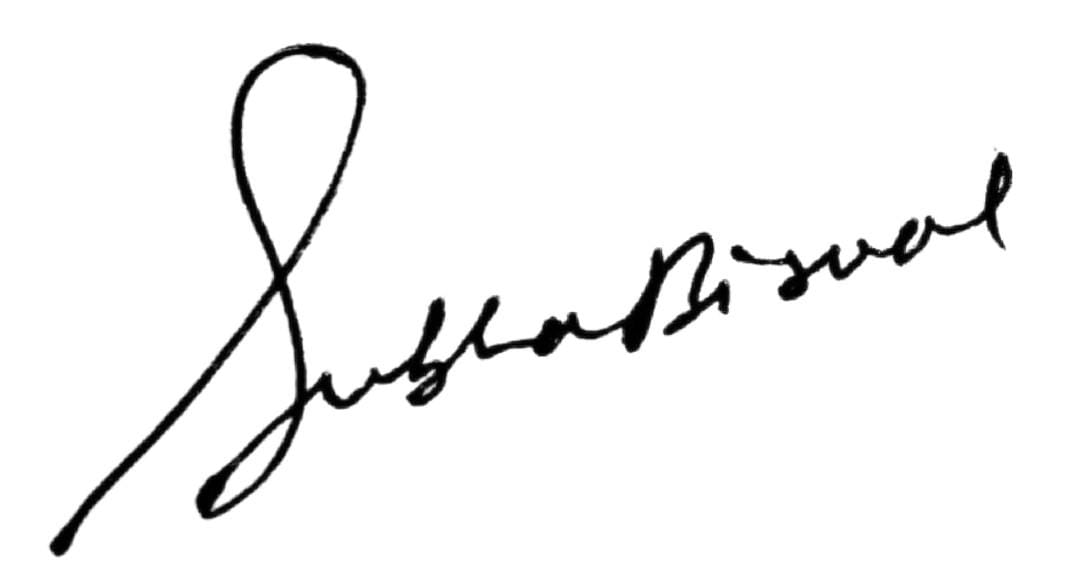 Subha Biswal